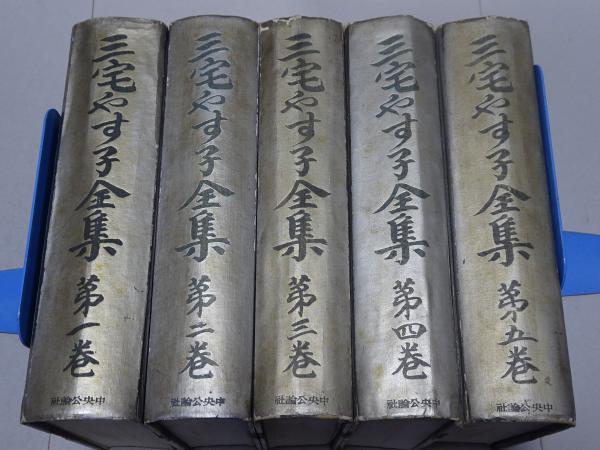 三宅やす子全集 第一巻
社論公央中
三宅やす子全集 第二巻
社論公央中
三宅やす子全集 第三巻
社論公央中
三宅やす子全集 第四巻
社論公央中
三宅やす子全集 第五巻
社論公央中